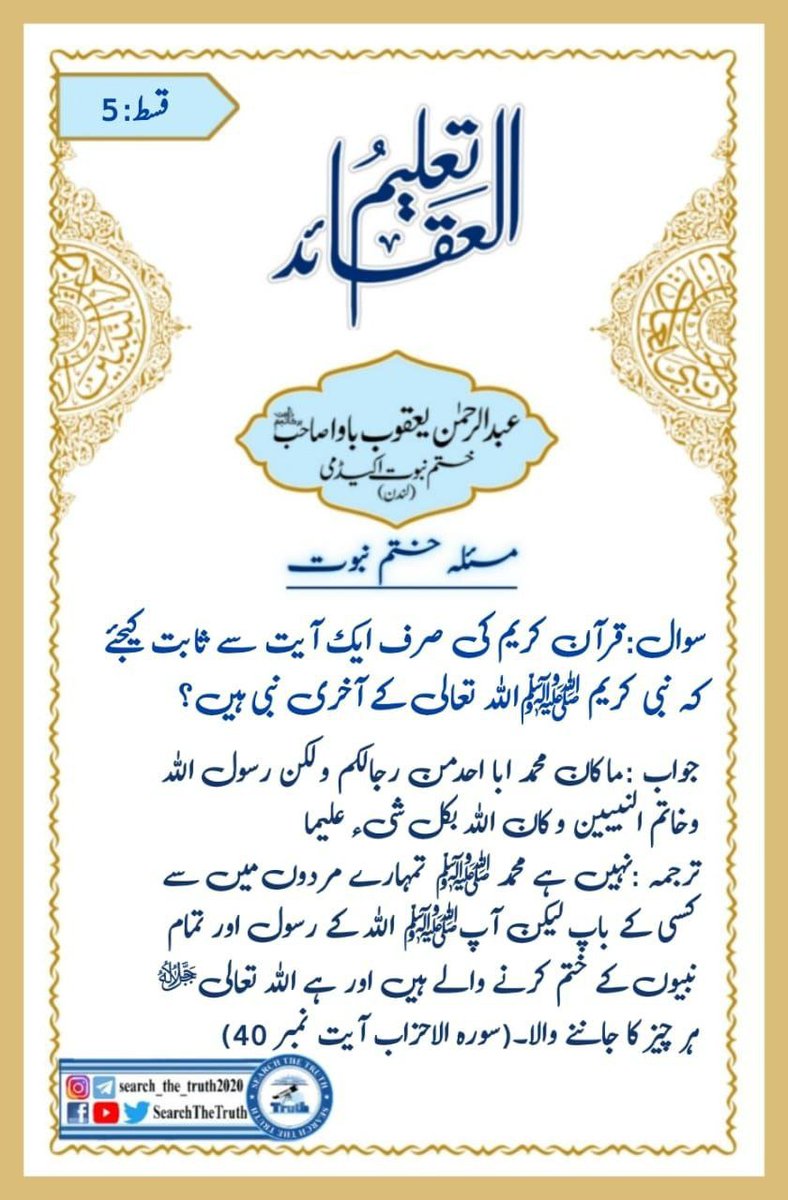 قسط:5
تعلیمُ
العقائد
عبدالرحمٰن یعقوب باوا صاحب
ختم نبوت اکیڈمی
(لندن)
مسئلہ ختم نبوت
سوال:قرآن کریم کی صرف ایک آیت سے ثابت کیجئے
کہ نبی کریم ﷺ اللہ تعالی کے آخری نبی ہیں؟
جواب :ماکان محمد ابا احدمن رجالکم ولکن رسول اللہ
وخاتم النبیین وکان اللہ بکل شیء علیما
ترجمہ :نہیں ہے محمد ﷺ تمہارے مردوں میں سے
کسی کے باپ لیکن آپ ﷺ اللہ کے رسول اور تمام
نبیوں کے ختم کرنے والے ہیں اور ہے اللہ تعالی جل جلالہ
ہر چیز کا جاننے والا۔(سورہ الاحزاب آیت نمبر 40)
search_the_truth2020
SearchTheTruth
SEARCH THE TRUTH
Truth
SEARCH THE TRUTH